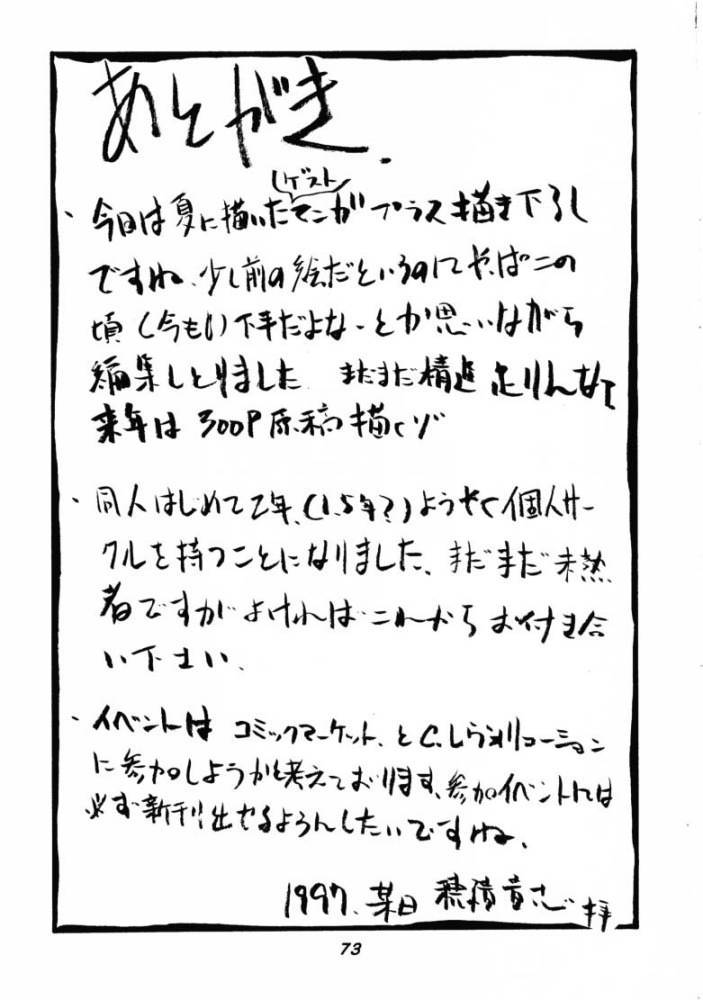 あとがき.
ゲスト
・今回は夏に描いたマンガプラス描き下ろし
ですね、少し前の絵だというのにやっぱこの
頃(今も!)下手だよなーとか思いながら
編集しとりました まだまだ精進足りんなて
来年は300P原稿描くゾ
・同人はじめて2年、(1.5年?)ようやく個人サー
クルを持つことになりました、まだまだ未熟
者ですがよければこれからお付き合
い下さい、
・イベントは コミックマーケット、とC.レヴォリューション
に参加しようかと考えております、参加イベントには
必ず新刊出せるようにしたいですね、
1997、某日 穂積貴志 拝
73